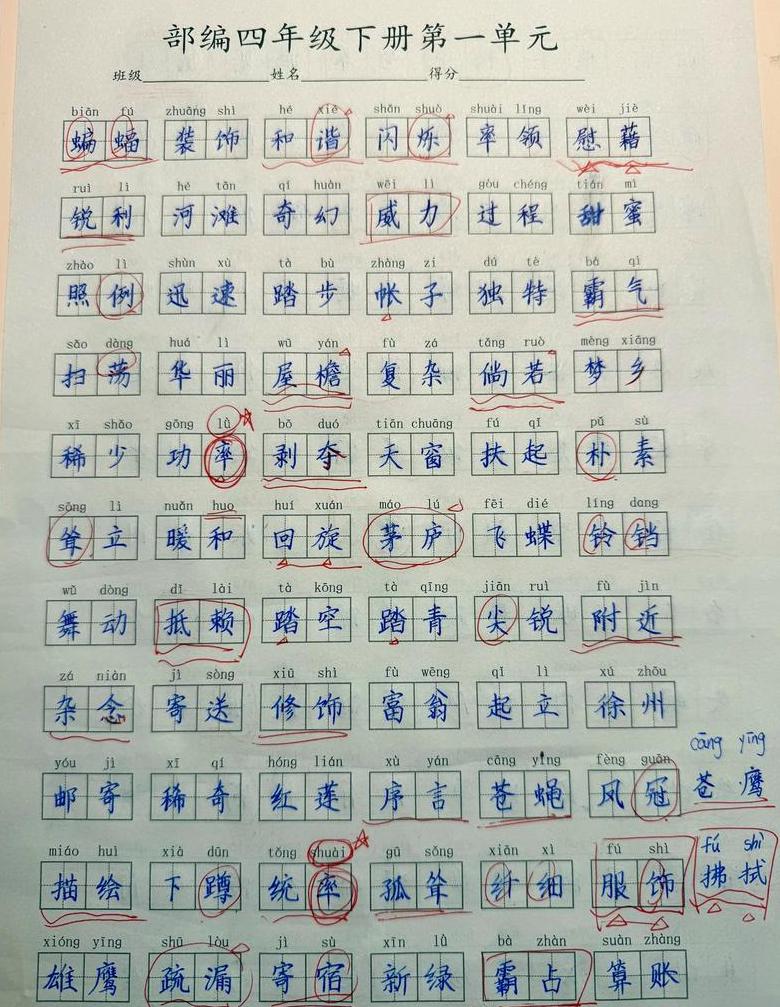 部编四年级下册第一单元
班级 姓名 得分
biān fú zhuāng shì hé xié shǎn shuò shuài lǐng wèi jiè
蝙蝠 装饰 和谐 闪烁 率领 慰藉
ruì lì hé tān qí huàn wēi lì gòu chéng tián mì
锐利 河滩 奇幻 威力 过程 甜蜜
zhào lì shùn xù tà bù zhàng zi dú tè bà qì
照例 迅速 踏步 帐子 独特 霸气
sǎo dàng huá lì wū yán fù zá tǎng ruò mèng xiāng
扫荡 华丽 屋檐 复杂 倘若 梦乡
xī shǎo gōng lǜ bō duó tiān chuāng fú qǐ pǔ sù
稀少 功率 剥夺 天窗 扶起 朴素
sǒng lì nuǎn huo huí xuán máo lú fēi dié líng dang
耸立 暖和 回旋 茅庐 飞蝶 铃铛
wǔ dòng dǐ lài tà kōng tà qīng jiān ruì fù jìn
舞动 抵赖 踏空 踏青 尖锐 附近
zá niàn jì sòng xiū shì fù wēng qǐ lì xú zhōu
杂念 寄送 修饰 富翁 起立 徐州
cāng yīng
yóu jì xī qí hóng lián xù yán cāng yíng fèng guān
邮寄 稀奇 红莲 序言 苍蝇 风冠 苍鹰
miáo huì xià dūn tǒng shuài gū sǒng xiān xì fú shì fú shì
描绘 下蹲 统率 孤耸 纤细 服饰 拂拭
xióng yīng shū lòu jì sù xīn lǜ bà zhàn suàn zhàng
雄鹰 疏漏 寄宿 新绿 霸占 算账